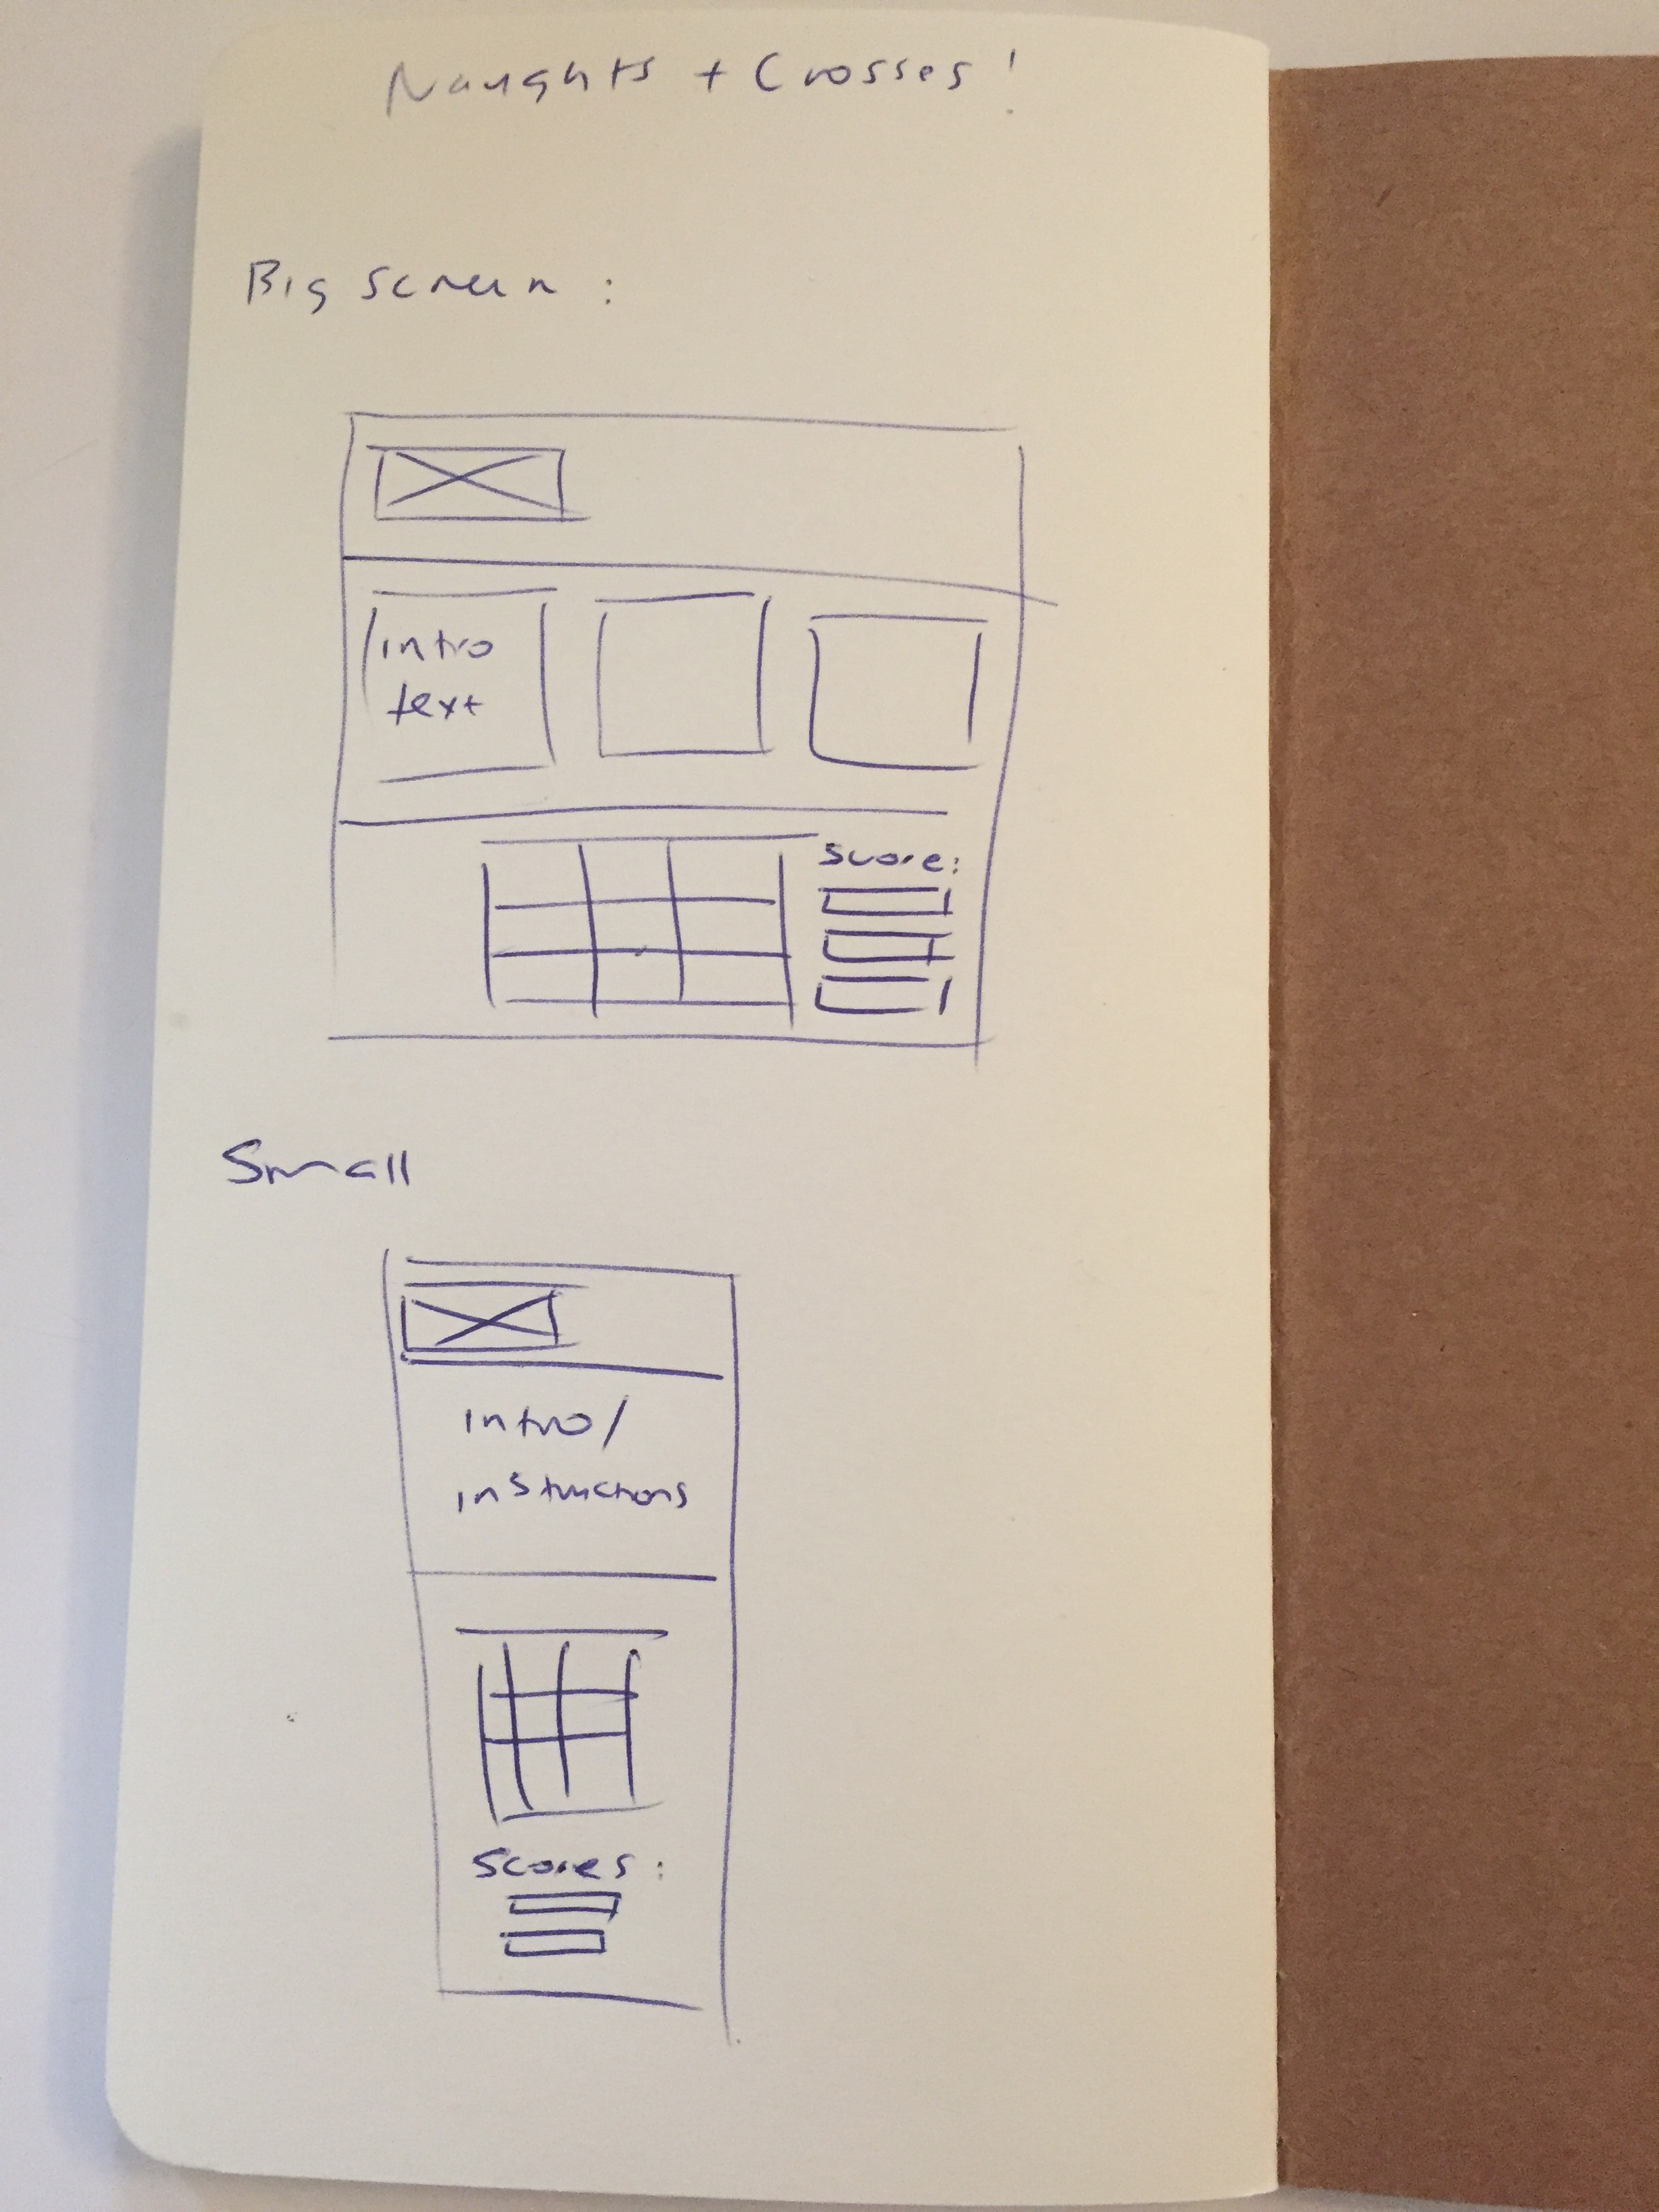 Naughts + Crosses!
Big screen:
intro
text
Score:
Small
intro/
instructions
Scores: